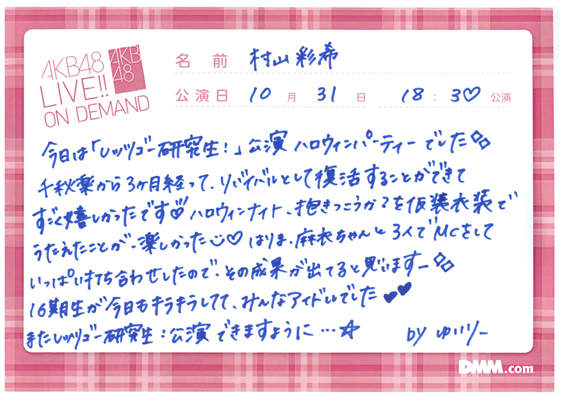 AKB48
LIVE!!
ON DEMAND
AKB
48
名前 村山彩希
公演日 10月31日 18:30公演
今日は「レッツゴー研究生!」公演 ハロウィンパーティーでした
千秋楽から3ヶ月経って、リバイバルとして復活することができて
すごく嬉しかったです♡ハロウィンナイト、抱きつこうか?を仮装衣装で
うたえたことが楽しかった♡はりま、麻衣ちゃんと3人でMCをして
いっぱい打ち合わせしたので、その成果が出てると思いますー
16期生が今日もキラキラしてて、みんなアイドルでした♥♥
またレッツゴー研究生!公演できますように…☆ by ゆいりー
DMM.com